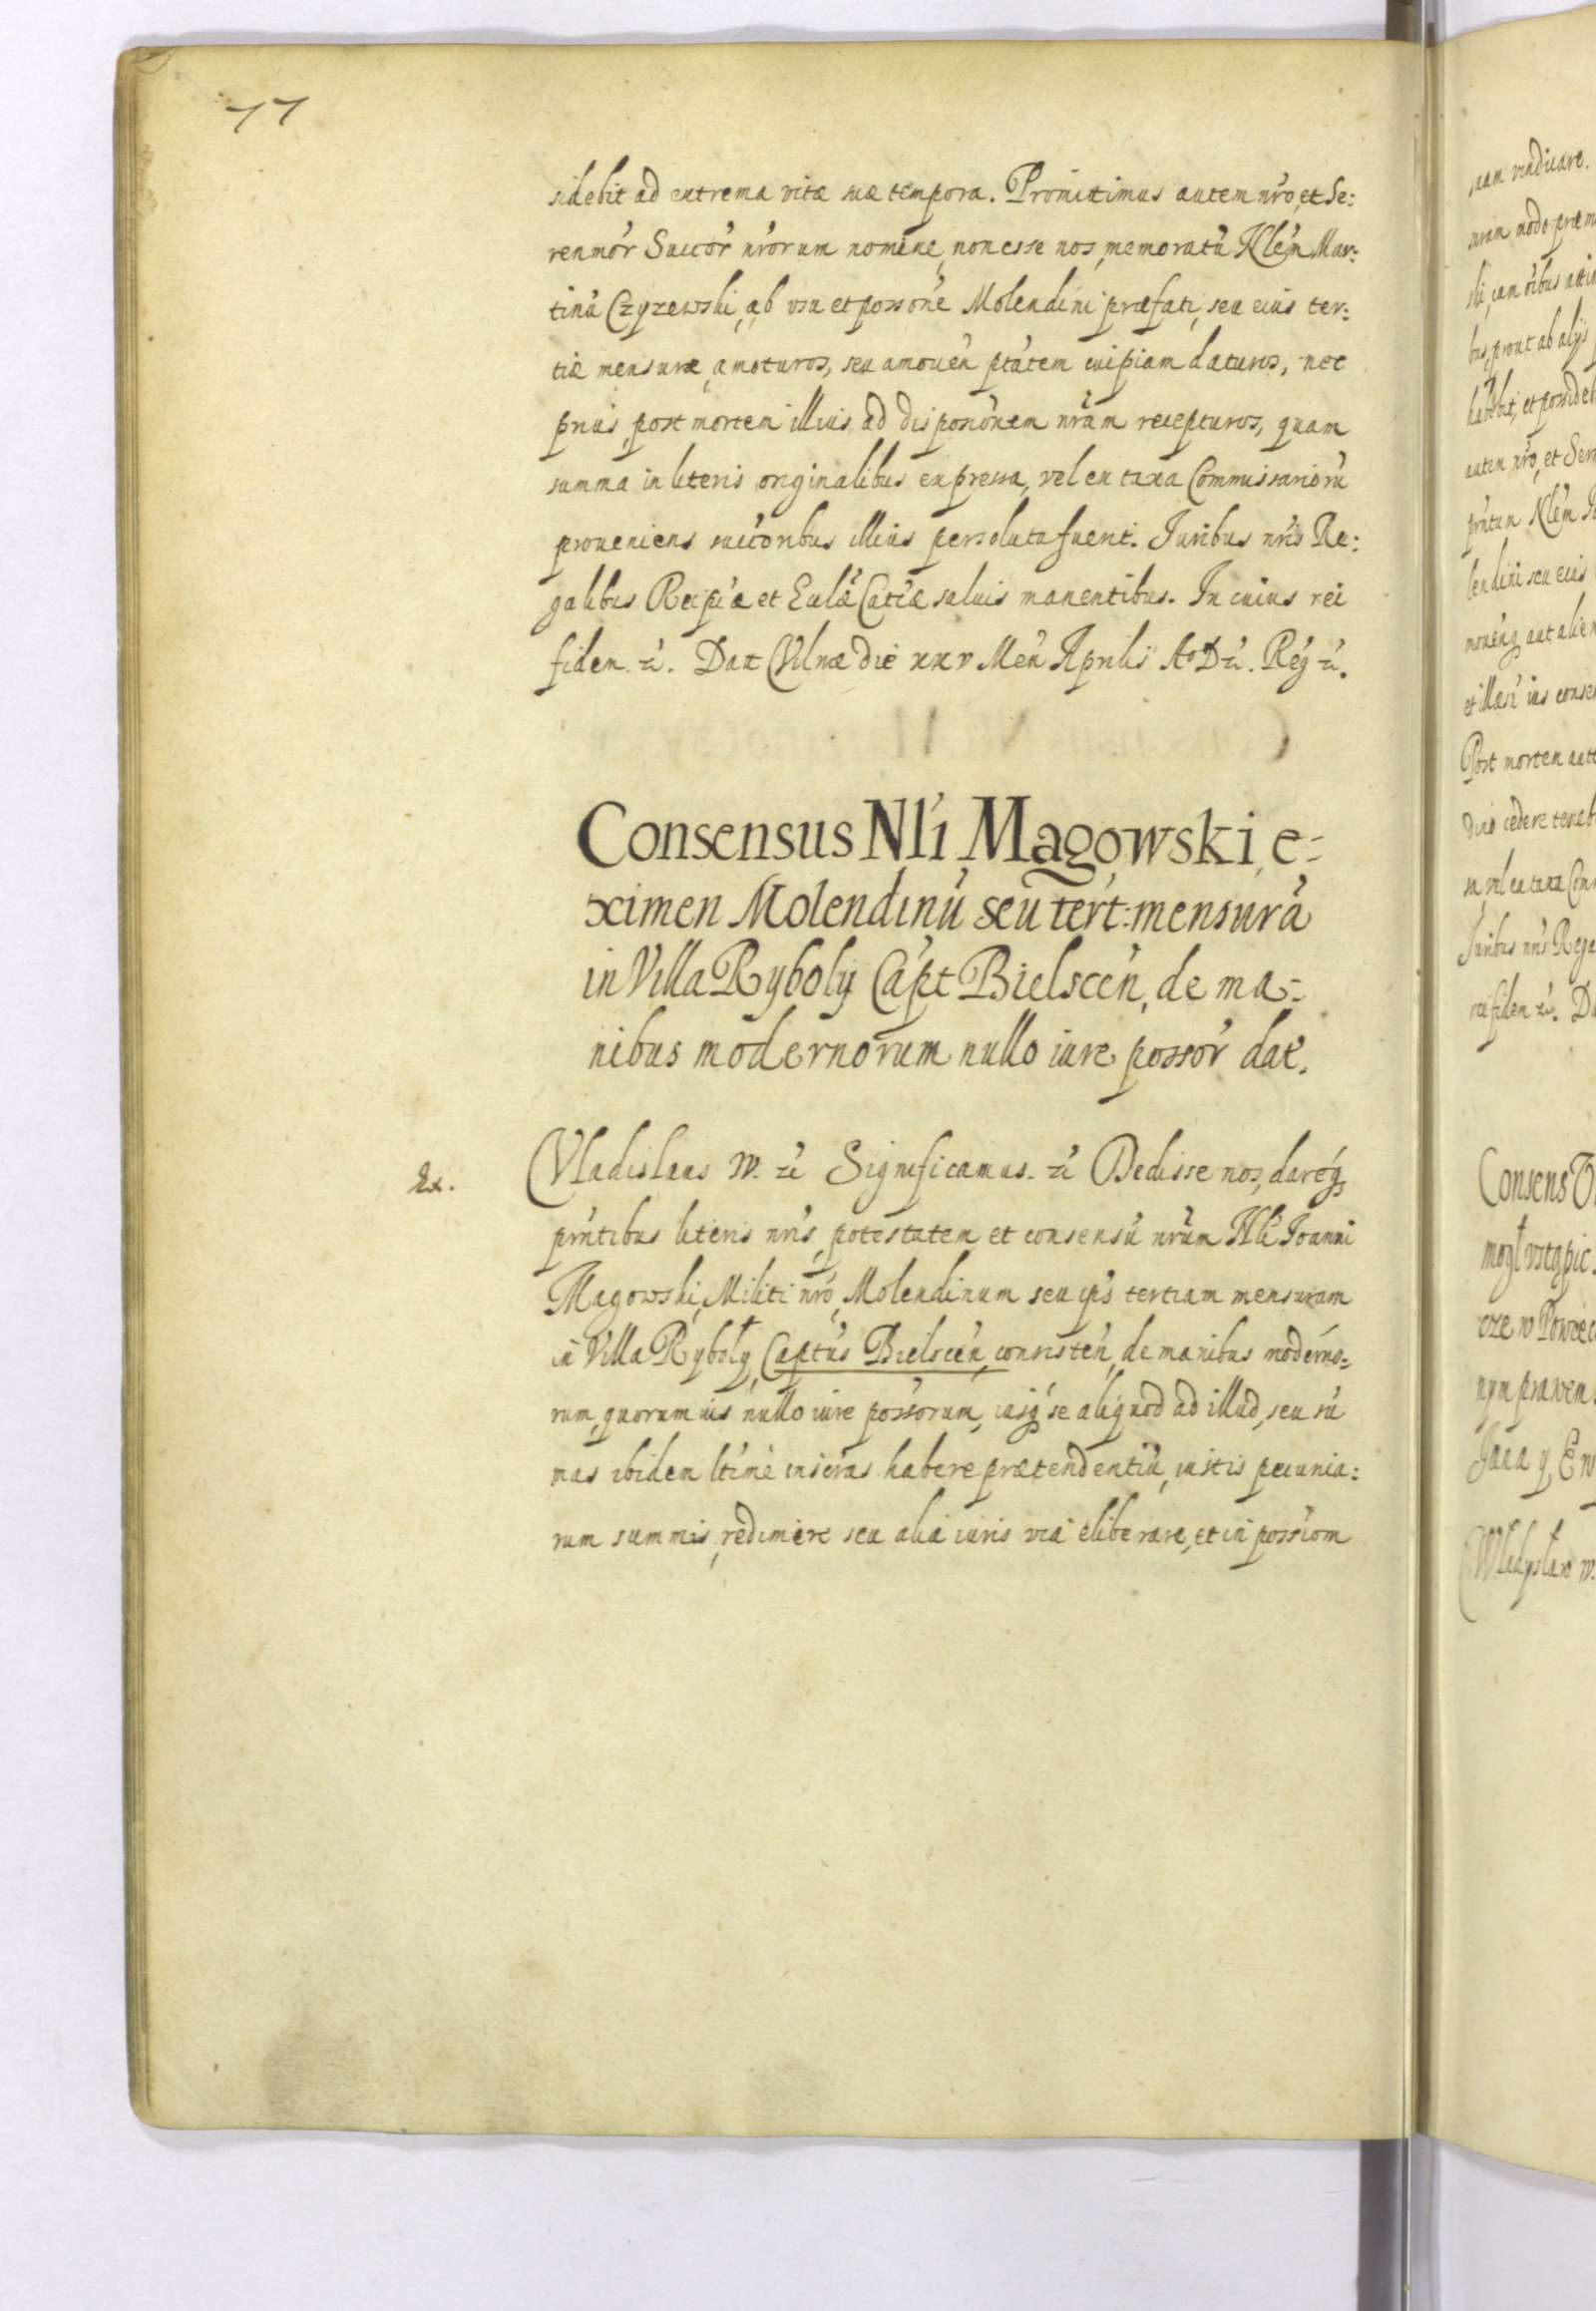 77
sidebit ad extrema vitæ suæ tempora. Promittimus autem nro, et Se:
renmor Succor nrorum nomine, non esse nos, memoratu Nlem Mar:
tinu Czyzewski, ab usu et possone Molendini præfati, seu eius ter:
tiæ mensuræ, amoturos, seu amouen ptatem cuipiam daturos, nec
prius, post mortem illius, ad disponem nram recepturos, quam
summa in literis originalibus expressa, vel ex taxa Commissarioru
proueniens succoribus illius persoluta fuerit. Iuribus nris Re:
galibus Reipcæ et Ecclæ Catcæ saluis manentibus. In cuius rei
fidem &c. Dat Vilnæ die xxv Men Aprilis Ao D &c. Reg &c.
Consensus Nli Magowski, e:
ximen Molendinu seu tert: mensura
in Villa Ryboly Capt Bielscen, de ma:
nibus modernorum nullo iure possor dat.
Ex.
Vladislaus IV. &c Significamus. &c Dedisse nos, dareq
prntibus literis nris, potestatem et consensu nrum Nli Ioanni
Magowski, Militi nro, Molendinum seu ips tertiam mensuram
in Villa Ryboły, Captus Bielscen, consisten, de manibus moderno:
rum, quorumuis nullo iure possorum, iusq se aliquod ad illud, seu su
mas ibidem ltime inscras habere prætendentiu, iustis pecunia:
rum summis, redimere seu alia iuris via eliberare, et in possiom
suam vindicare.
prout ab alijs
habebit, et possideb
autem nro, et Ser
lendini seu eius
Post mortem aute
Iuribus nris Rega
rei fidem &c. Da
Consens
Władysław IV.